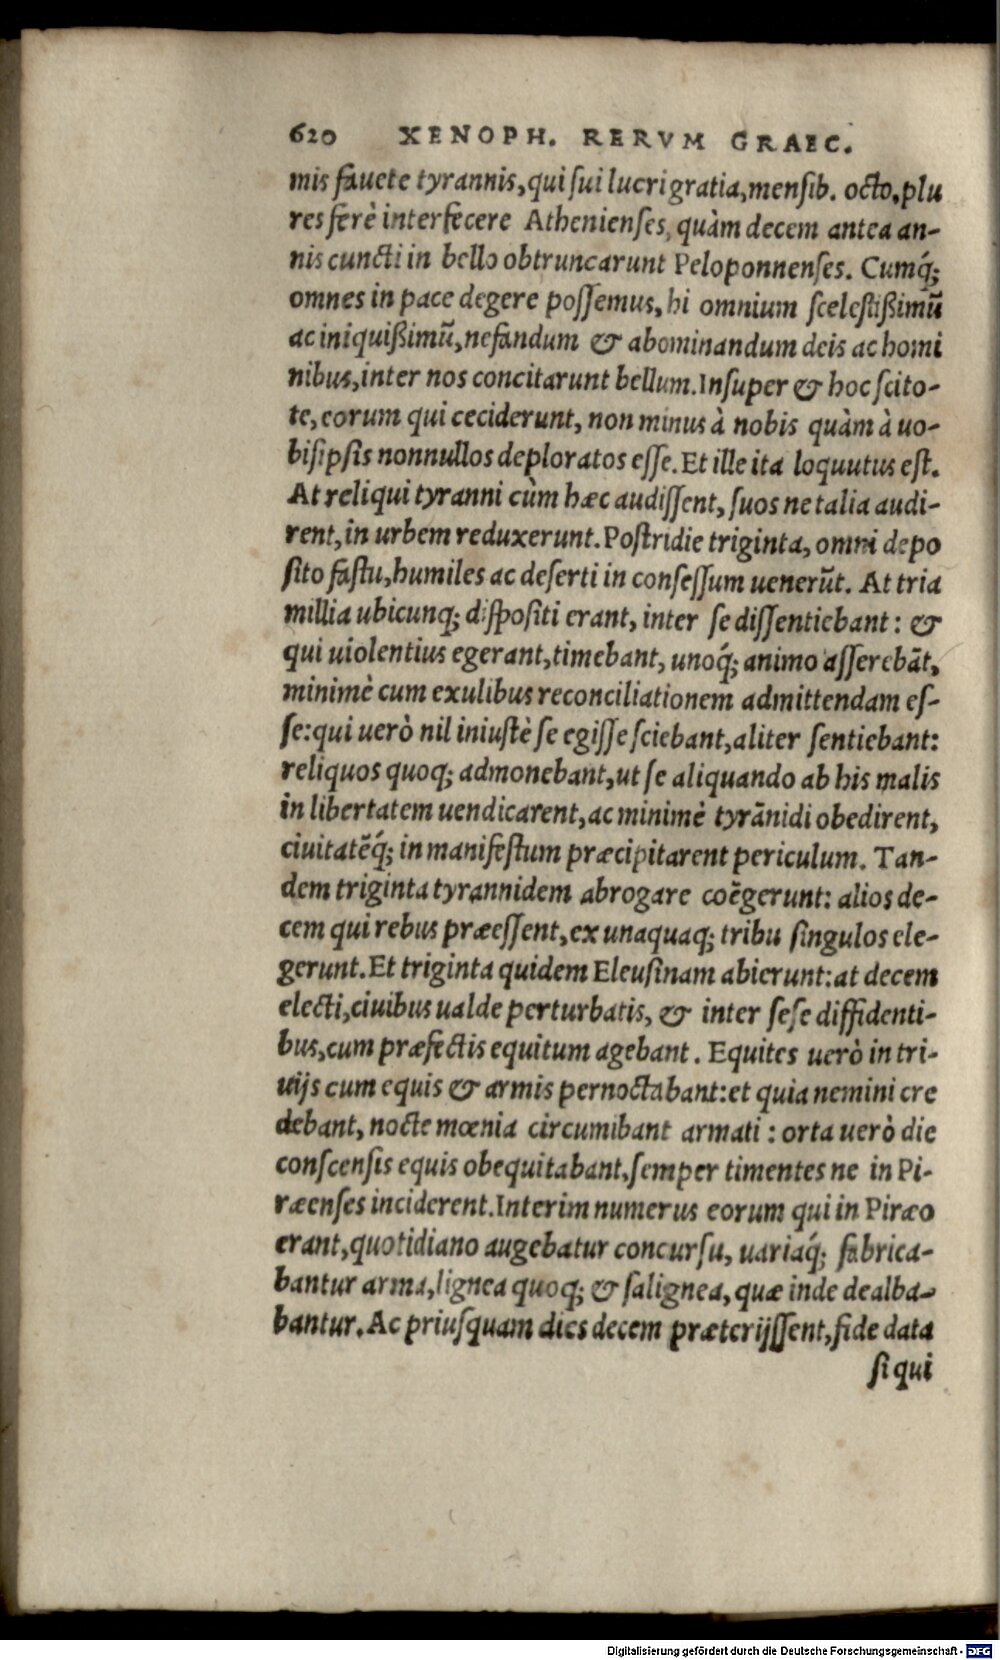 620 XENOPH. RERVM GRAEC.
mis fauete tyrannis, qui sui lucri gratia, mensib. octo, plu
res ferè interfecere Athenienses, quàm decem antea an-
nis cuncti in bello obtruncarunt Peloponnenses. Cumq́;
omnes in pace degere possemus, hi omnium scelestißimũ
ac iniquißimũ, nefandum & abominandum deis ac homi
nibus, inter nos concitarunt bellum. Insuper & hoc scito-
te, eorum qui ceciderunt, non minus à nobis quàm à uo-
bisipsis nonnullos deploratos esse. Et ille ita loquutus est.
At reliqui tyranni cùm hæc audissent, suos ne talia audi-
rent, in urbem reduxerunt. Postridie triginta, omni depo
sito fastu, humiles ac deserti in consessum uenerũt. At tria
millia ubicunq; dispositi erant, inter se dissentiebant: &
qui uiolentius egerant, timebant, unoq́; animo asserebãt,
minimè cum exulibus reconciliationem admittendam es-
se: qui uerò nil iniustè se egisse sciebant, aliter sentiebant:
reliquos quoq; admonebant, ut se aliquando ab his malis
in libertatem uendicarent, ac minimè tyrãnidi obedirent,
ciuitatẽq́; in manifestum præcipitarent periculum. Tan-
dem triginta tyrannidem abrogare coẽgerunt: alios de-
cem qui rebus præessent, ex unaquaq; tribu singulos ele-
gerunt. Et triginta quidem Eleusinam abierunt: at decem
electi, ciuibus ualde perturbatis, & inter sese diffidenti-
bus, cum præfectis equitum agebant. Equites uerò in tri-
uijs cum equis & armis pernoctabant: et quia nemini cre
debant, nocte mœnia circumibant armati: orta uerò die
conscensis equis obequitabant, semper timentes ne in Pi-
ræenses inciderent. Interim numerus eorum qui in Piræo
erant, quotidiano augebatur concursu, uariaq́; fabrica-
bantur arma, lignea quoq; & salignea, quæ inde dealba-
bantur. Ac priusquam dies decem præterijssent, fide data
si qui
Digitalisierung gefördert durch die Deutsche Forschungsgemeinschaft - DFG